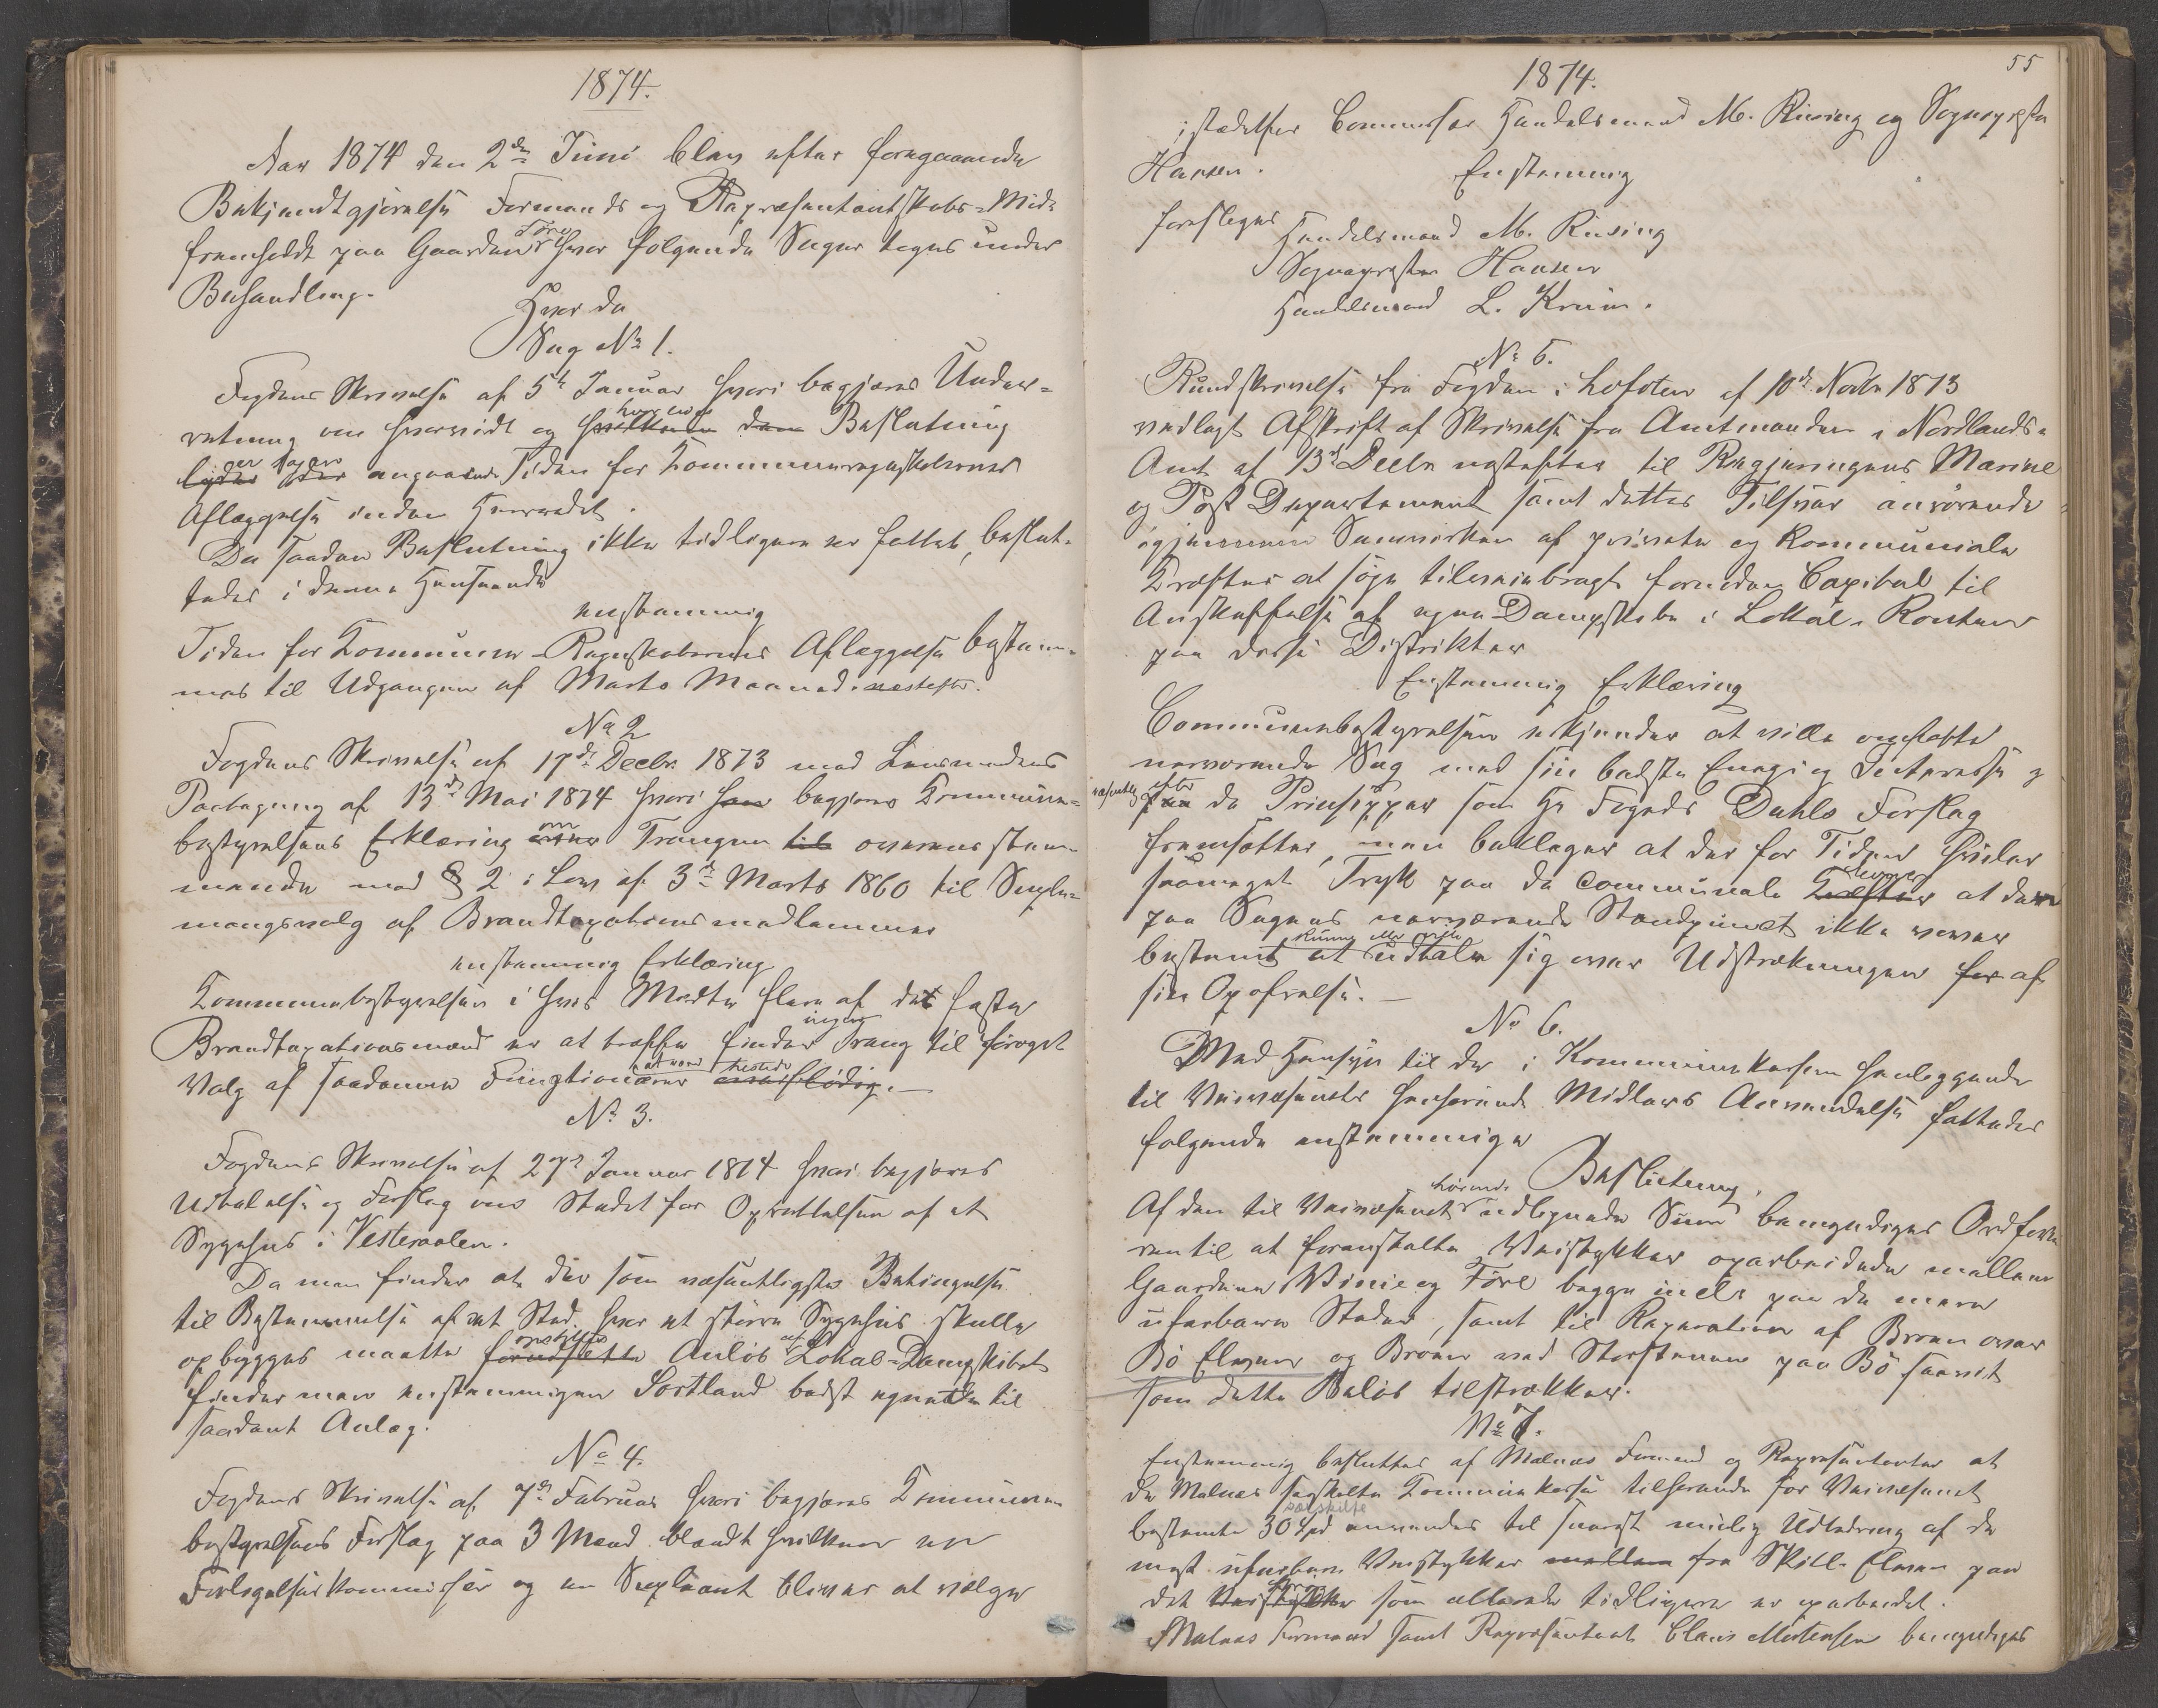 1874.
Aar 1874 den 2den Juni blev efter foregaaende
Bekjendtgjørelse Formands og Repræsentantskabs-Møde
fremholdt paa Gaarden Føre hvor følgende Sager toges under
Behandling.
Hvor da
Sag No 1.
Fogdens Skrivelse af 5te Januar hvori begjæres Under-
retning om hvorvidt og hvilken den Beslutning
angaaende Tiden for Kommuneregnskabernes
Aflæggelse inden Herredet.
Da saadan Beslutning ikke tidligere er fattet, beslut-
tedes i denne Henseende
enstemmig
Tiden for Kommune-Regnskabernes Aflæggelse bestem-
mes til Udgangen af Marts Maaned næstefter.
No 2
Fogdens Skrivelse af 17de Decbr. 1873 med Lensmandens
Paategning af 13de Mai 1874 hvori han begjæres Kommune-
bestyrelsens Erklæring om Trangen til overensstem-
mende med § 2 i Lov af 3de Marts 1860 til Suple-
ringsvalg af Brandtaxationsmedlemmer
enstemmig Erklæring
Kommunebestyrelsen i hvis Midte flere af de faste
Brandtaxationsmænd er at træffe finder ingen Trang til forøget
Valg af saadanne Funktionærer at være tilstede overflødig. —
No 3.
Fogdens Skrivelse af 27de Januar 1874 hvori begjæres
Udtalelse og Forslag om Stedet for Oprettelsen af et
Sygehus i Vesteraalen.
Da man finder at der som væsentligste Betingelse
til Bestemmelse af et Sted hvor et større Sygehus skulle
opbygges maatte opstilles forudsætte Anløb af Lokal-Dampskibet
finder man enstemmigen Sortland bedst egnede til
saadant Anlæg.
No 4.
Fogdens Skrivelse af 7de Februar hvori begjæres Kommune-
bestyrelsens Forslag paa 3 Mænd blandt hvilkene en
Forligelseskommissær og en Supleant bliver at vælge
55
1874.
istedetfor Commissær Handelsmand M. Rising og Sognepræsten
Hansen.
Enstemmig
foresloges Handelsmand M. Rising
Sognepræsten Hansen
Handelsmand L. Krüm.
No 5.
Rundskrivelse fra Fogden i Lofoten af 10de Novbr 1873
vedlagt Afskrift af Skrivelse fra Amtmanden i Nordlands-
Amt af 13de Decbr næstefter til Regjeringens Marine
og Post Departement samt dettes Tilsvar anrørende
igjennem Samvirken af private og Kommunale
Kræfter at søge tilveiebragt fornøden Capital til
Anskaffelse af egne Dampskibe i Lokal-Routen
paa disse Distrikter
Enstemmig Erklæring
Communebestyrelsen erkjender at ville omfatte
nærværende Sag med sin bedste Energi og Interesse og
væsentlig efter paa de Prinsipper som Hr Fogeds Dahls Forslag
fremsætter, men beklager at der for Tiden hviler
saameget Tryk paa de communale Kræfter at den
paa Sagens nærværende Standpunct ikke vover
bestemt at kunne eller ville udtale sig over Udstrækningen for af
sin Opofrelse. —
No 6.
Med Hensyn til de i Kommunekassen henliggende
til Veivæsenets henhørende Midlers Anvendelse fattedes
følgende enstemmige
Beslutning.
Af den til Veivæsenet hørende udlignede Sum bemyndiges Ordføre-
ren til at foranstalte Veistykker oparbeidede mellem
Gaardene Vinie og Føre begge incl. paa de mere
ufarbare Steder, samt til Reparation af Broen over
Bö Elven og Broen ved Storstenen paa Bö saavidt
som dette Beløb tilstrækker.
No 7.
Enstemmig besluttes af Malnes Formænd og Repræsentanter at
de Malnes særskilte Kommunekasse tilhørende for Veivæsenet
særskilte
bestemte 30 Spd anvendes til snarest mulig Udbedring af de
mest ufarbare Veistykker mellem fra Skill-Elven paa
det Veistykke som allerede tidligere er oparbeidet.
Malnes Formænd samt Repræsentant Claus Mortensen bemyndiges